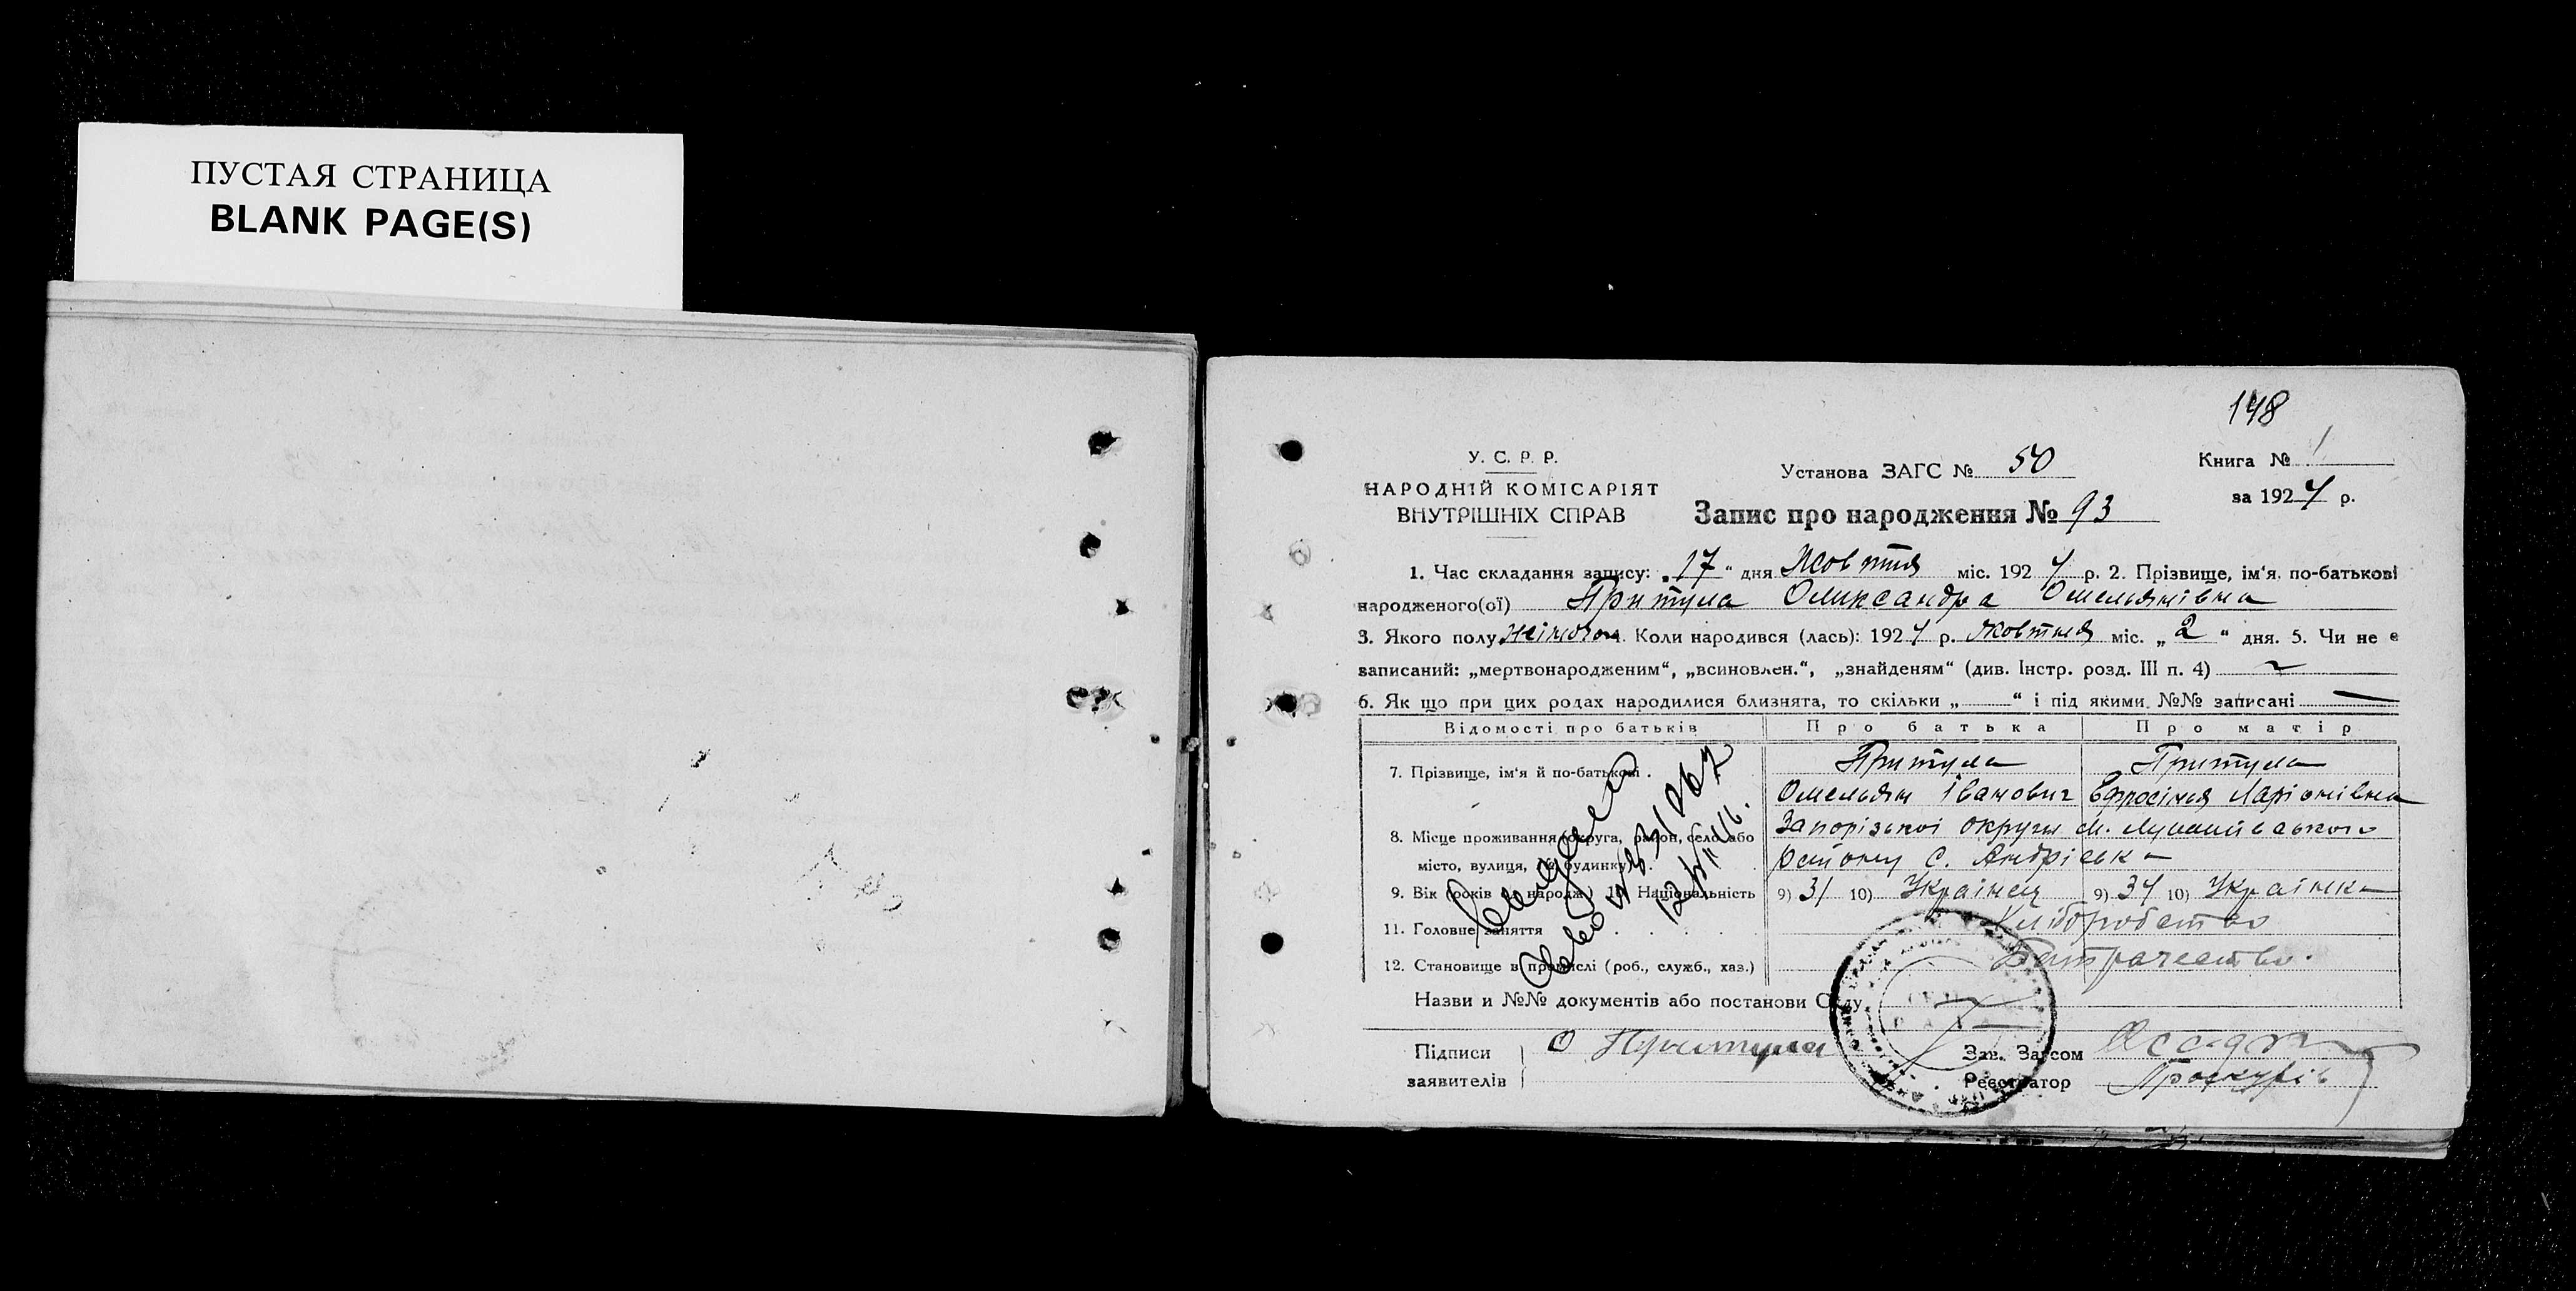 ПУСТАЯ СТРАНИЦА
BLANK PAGE(S)
148
У. С. Р. Р.
НАРОДНІЙ КОМІСАРІЯТ
ВНУТРІШНІХ СПРАВ
Установа ЗАГС № 50
Книга № 1
за 1927 р.
Запис про народження № 93
1. Час складання запису: „17“ дня Жовтня міс. 1927 р. 2. Прізвище, ім'я, по-батькові
народженого(ої) Притула Олександра Омельянівна
3. Якого полу жіночого 4. Коли народився (лась): 1927 р. Жовтня міс. „2“ дня. 5. Чи не є
записаний: „мертвонародженим“, „всиновлен.“, „знайденям“ (див. Інстр. розд. III п. 4)
6. Як що при цих родах народилися близнята, то скільки „ “ і під якими №№ записані
Відомості про батьків Про батька Про матір
7. Прізвище, ім'я й по-батькові . Притула Притула
Омельян Іванович Єфросінья Ларіонівна
8. Місце проживання (округа, район, село або Запорізької округи М. Лукашівського
місто, вулиця, № будинку) . району с. Андріівка
9. Вік (років в народж.) 10. Національність 9) 31 10) Українец 9) 34 10) Українка
11. Головне заняття Хліборобство
12. Становище в промислі (роб., служб., хаз.) Батрачество.
Назви и №№ документів або постанови Суду
Підписи
заявителів
О Притула
Зав. Загсом
Реєстратор